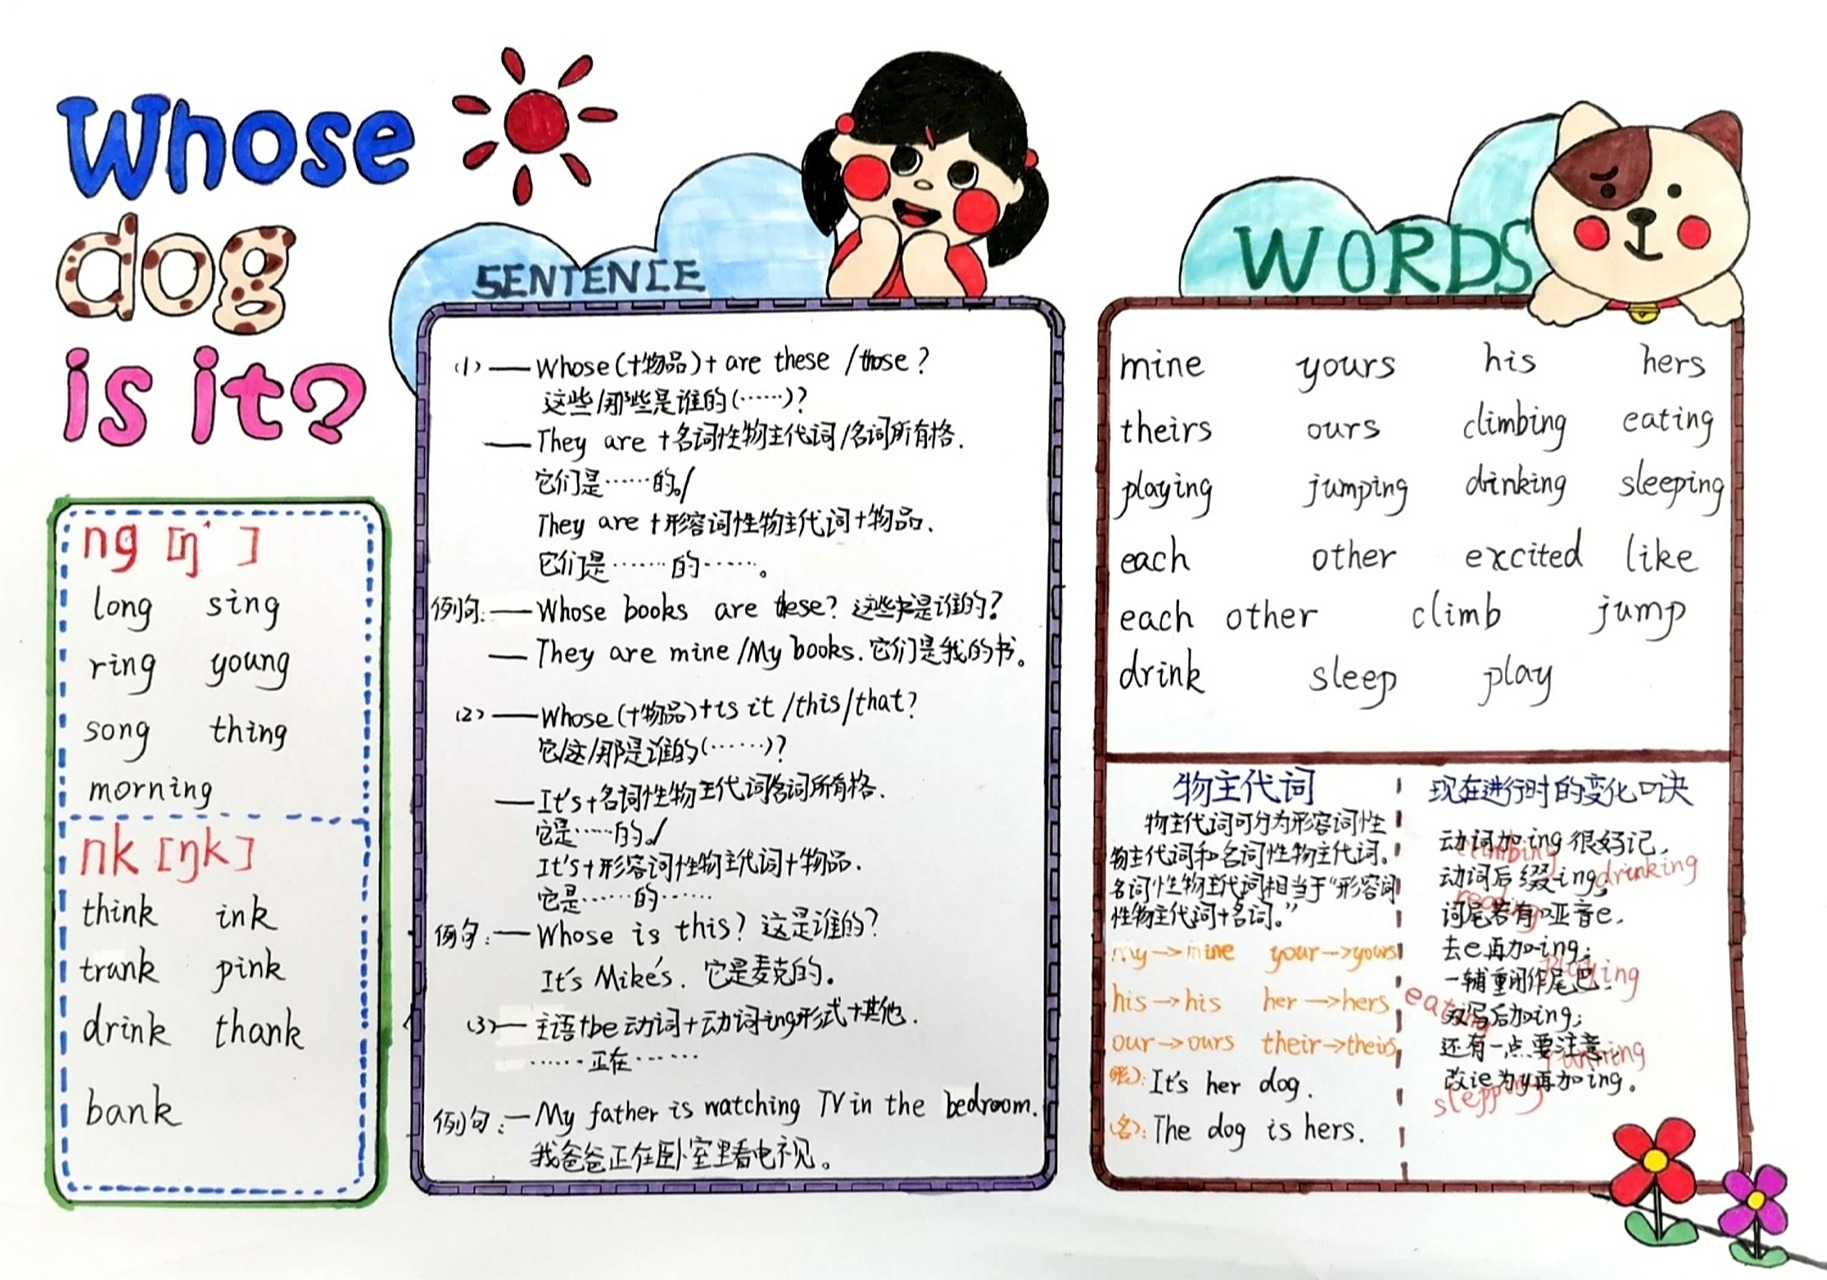 Whose
dog
is it?
ng [ŋ]
long sing
ring young
song thing
morning
nk [ŋk]
think ink
trunk pink
drink thank
bank
SENTENCE
(1) — Whose(+物品)+ are these /those?
这些/那些是谁的(……)?
— They are +名词性物主代词/名词所有格.
它们是……的。/
They are +形容词性物主代词+物品.
它们是……的……。
例句: — Whose books are these? 这些书是谁的?
— They are mine /My books. 它们是我的书。
(2) — Whose(+物品)+is it /this/that?
它/这/那是谁的(……)?
— It's+名词性物主代词/名词所有格.
它是……的。/
It's+形容词性物主代词+物品.
它是……的……
例句: — Whose is this? 这是谁的?
It's Mike's. 它是麦克的。
(3) — 主语+be动词+动词ing形式+其他.
……正在……
例句: — My father is watching TV in the bedroom.
我爸爸正在卧室里看电视。
WORDS
mine yours his hers
theirs ours climbing eating
playing jumping drinking sleeping
each other excited like
each other climb jump
drink sleep play
物主代词
物主代词可分为形容词性
物主代词和名词性物主代词.
名词性物主代词相当于“形容词
性物主代词+名词。”
my→mine your→yours
his→his her→hers
our→ours their→theirs
It's her dog.
(名): The dog is hers.
现在进行时的变化口诀
动词加ing很好记,
climbing
动词后缀ing;
drinking
词尾若有哑音e,
reading
去e再加ing;
playing
一辅重闭作尾巴,
eating
双写后加ing;
还有一点要注意,
running
改ie为y再加ing。